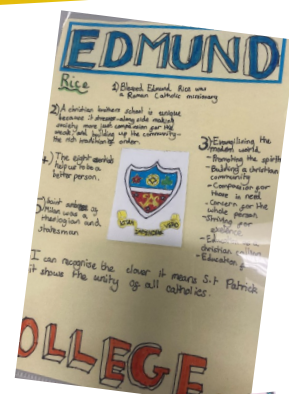 EDMUND
Rice
1) Blessed Edmund Rice was
a Roman Catholic missionary
2) A christian brothers school is unique
because it strives along side making
society more just compassion for the
weak and building up the community -
the rich tradition of order.
3) Evangelising the
modern world.
- Promoting the spirit
- Building a christian
community
- Compassion for
those in need
- Concern for the
whole person
- Striving for
- Education
christian
4.) The eight
help us to be a
better person.
5) Saint
Milan was a
theologian and
statesman
I can recognise the clover it means S.t Patrick
it shows the unity of all catholics.
OLLEGE